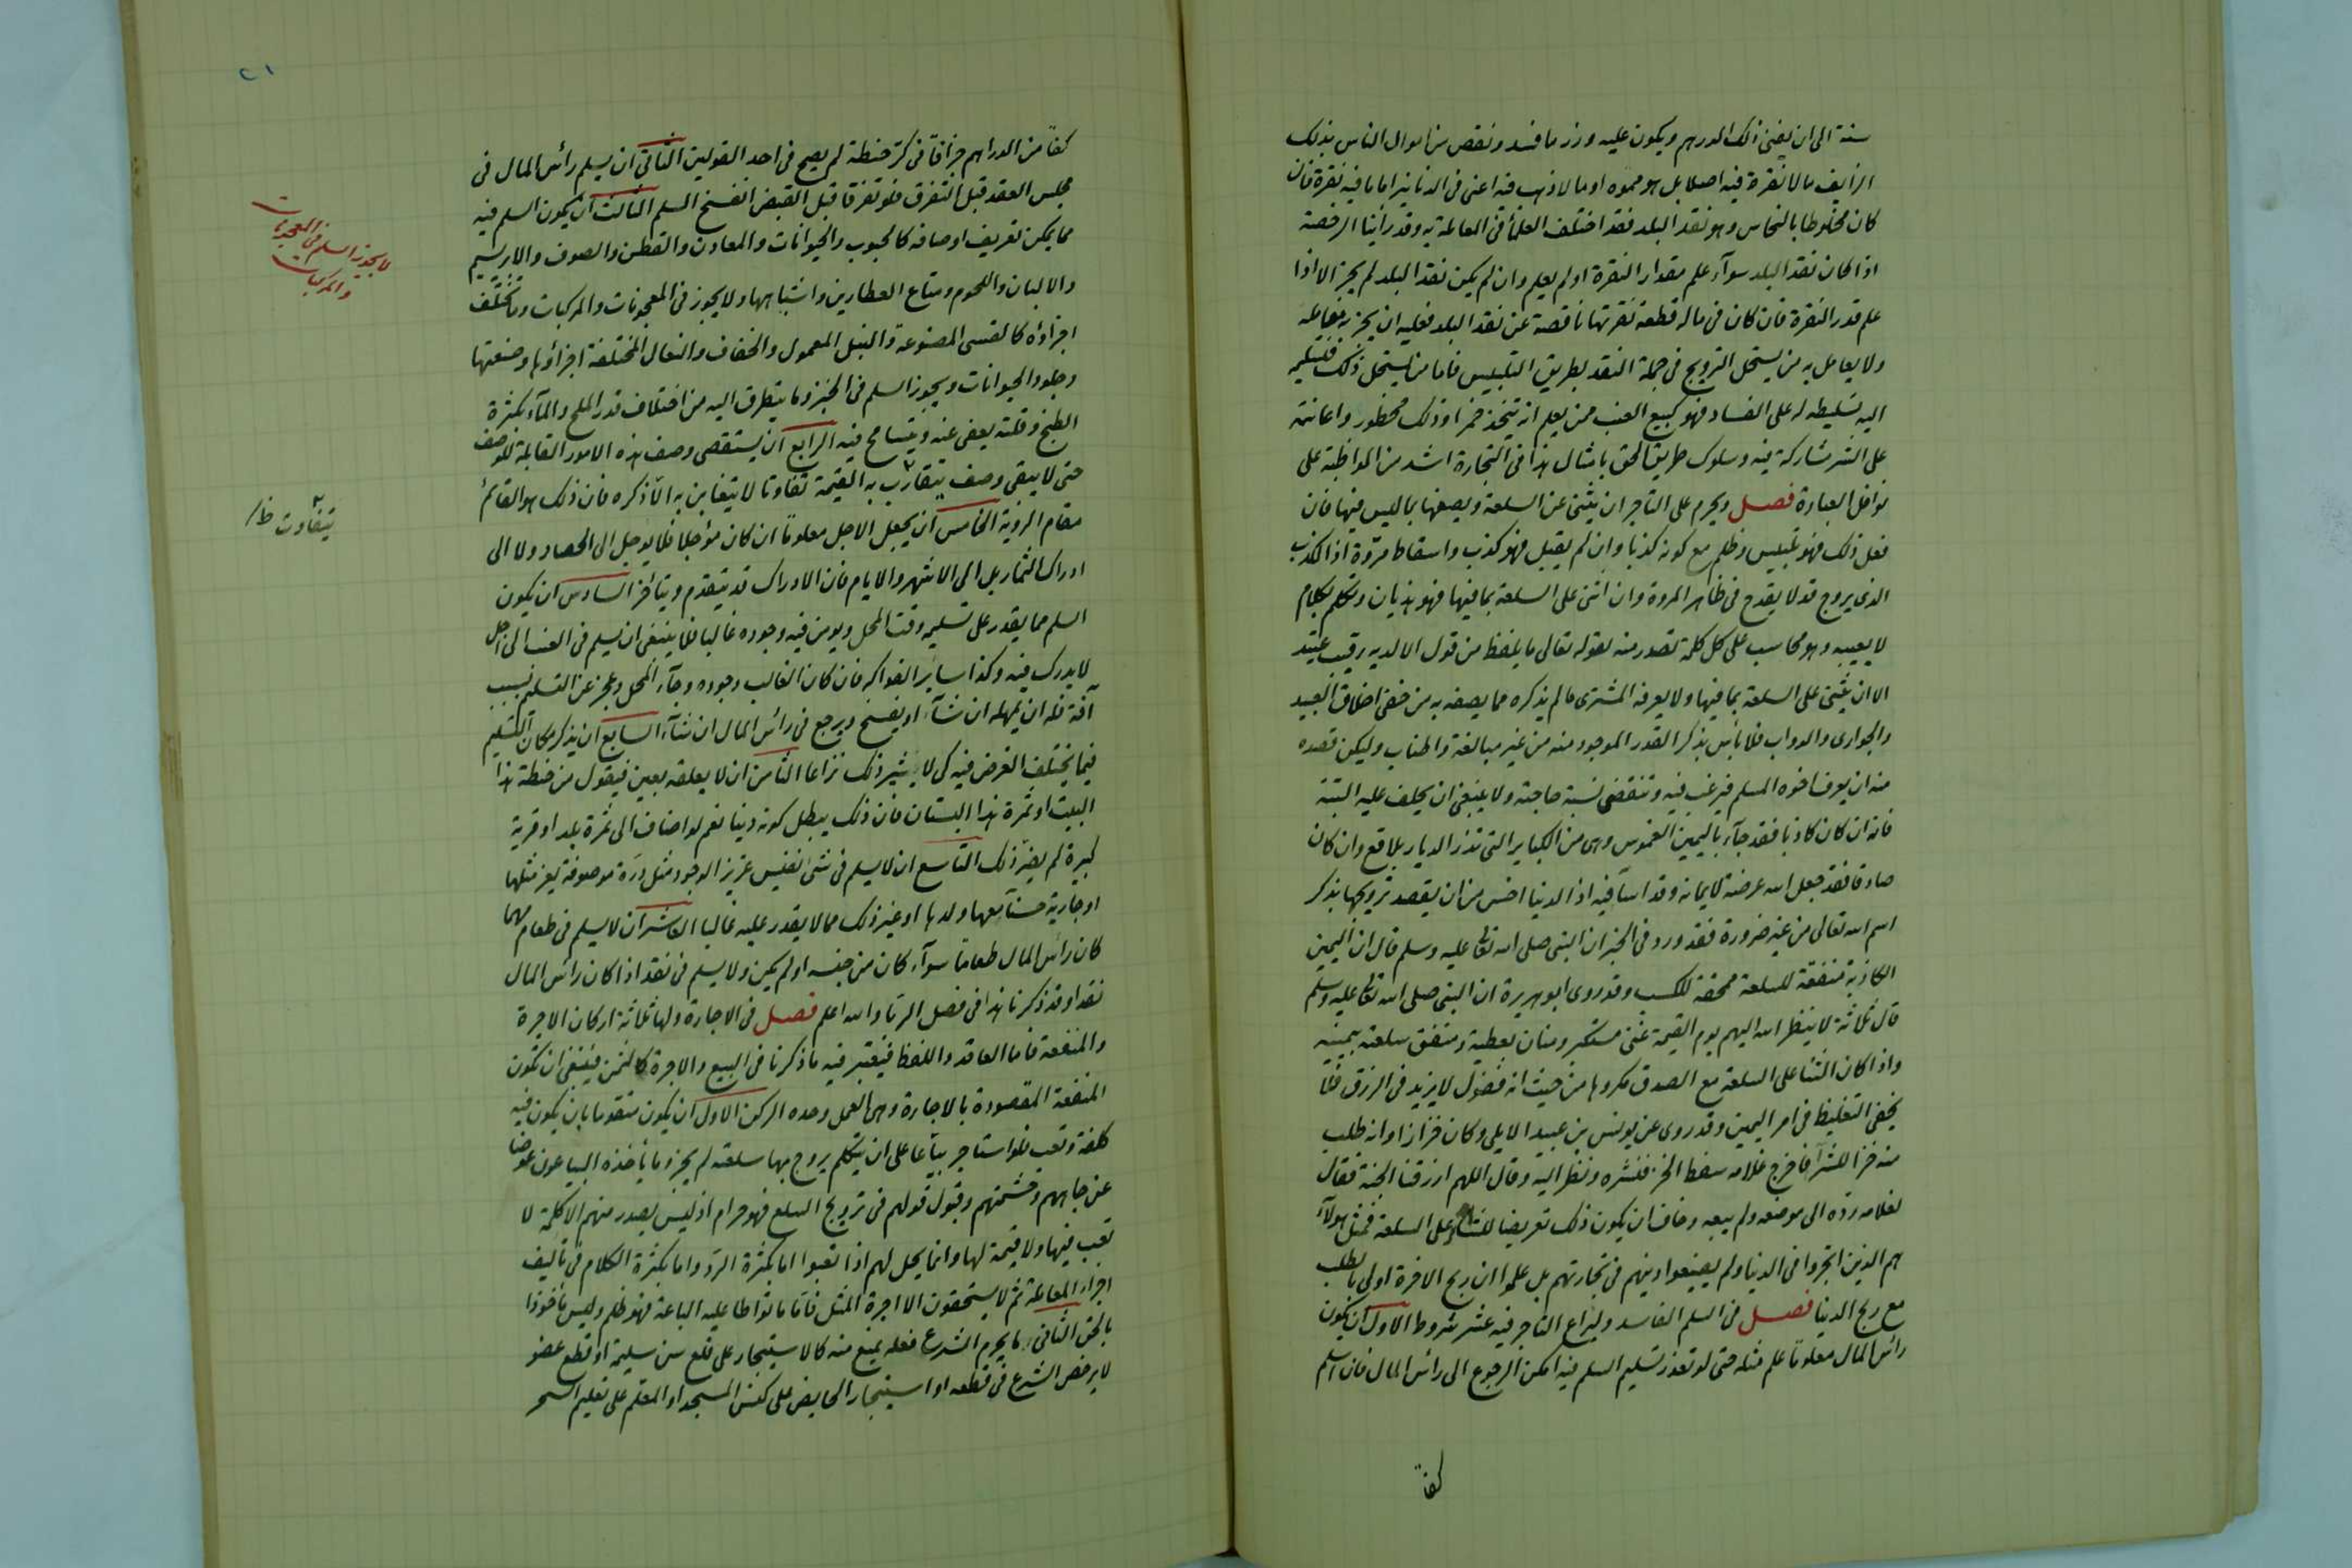 سنة الى ان يفنى ذلك الدرهم ويكون عليه وزر ما فسد ونقص من اموال الناس بذلك
الزايف ما لا نقرة فيه اصلا بل هو مموه او ما لا ذهب فيه اعنى فى الدنانير اما ما فيه نقرة فان
كان مخلوطا بالنحاس وهو نقد البلد فقد اختلف العلمأ فى المعاملة به وقد رأينا الرخصة
اذا كان نقد البلد سوآء علم مقدار النقرة او لم يعلم وان لم يكن نقد البلد لم يجز الا اذا
علم قدر النقرة فان كان فى ماله قطعة نقرتها ناقصة عن نقد البلد فعليه ان يخبر به معامله
ولا يعامل به من يستحل الترويج فى جملة النقد بطريق التلبيس فاما من يستحل ذلك فتسليمه
اليه تسليطه له على الفساد فهو كبيع العنب ممن يعلم انه يتخذ خمرا وذلك محظور واعانته
على الشر مشاركة فيه وسلوك طريق الحق بامثال هذا فى التجارة اشد من المواظبة على
نوافل العبادة فصل ويحرم على التاجر ان يثنى عن السلعة ويصفها بما ليس فيها فان
فعل ذلك فهو تلبيس وظلم مع كونه كذبا وان لم يقبل فهو كذب واسقاط مروّة اذا الكذب
الذى يروج قد لا يقدح فى ظاهر المروة وان اثنى على السلعة بما فيها فهو هذيان وتكلم بكلام
لا يعيبه وهو محاسب على كل كلمة تصدر منه لقوله تعالى ما يلفظ من قول الا لديه رقيب عتيد
الا ان يثنى على السلعة بما فيها ولا يعرفه المشترى ما لم يذكره مما يصفه به من خفى اخلاق العبيد
والجوارى والدواب فلا بأس بذكر القدر الموجود منه من غير مبالغة واطناب وليكن قصده
منه ان يعرف اخوه المسلم فيرغب فيه وتنقضى بسببه حاجته ولا ينبغى ان يحلف عليه البتة
فانه ان كان كاذبا فقد جآء باليمين الغموس وهى من الكباير التى تذر الديار بلاقع وان كان
صادقا فقد جعل الله عرضة لايمانه وقد اسآ فيه اذ الدنيا اخس من ان يقصد ترويجها بذكر
اسم الله تعالى من غير ضرورة فقد ورد فى الخبر ان النبى صلى الله تعالى عليه وسلم قال ان اليمين
الكاذبة منفقة للسلعة ممحقة للكسب وقد روى ابو هريرة ان النبى صلى الله تعالى عليه وسلم
قال ثلاثة لا ينظر الله اليهم يوم القيمة غنى متكبر ومنان بعطيته ومنفق سلعته بيمينه
واذا كان الثنا على السلعة مع الصدق مكروها من حيث انه فضول لا يزيد فى الرزق فلا
يخفى التغليظ فى امر اليمين وقد روى عن يونس بن عبيد الايلى وكان خزازا وانه طلب
منه خزا للشرآ فاخرج غلامه سفط الخز فنشره ونظر اليه وقال اللهم ارزقنا الجنة فقال
لغلامه ردّه الى موضعه ولم يبعه وخاف ان يكون ذلك تعريضا للثناء على السلعة فمثل هولآء
هم الذين اتجروا فى الدنيا ولم يضيعوا دينهم فى تجارتهم بل علموا ان ربح الاخرة اولى بالطلب
مع ربح الدنيا فصل فى السلم الفاسد وليراع التاجر فيه عشر شروط الاول ان يكون
رأس المال معلوما علم مثله حتى لو تعذر تسليم السلم فيه امكن الرجوع الى رأس المال فان اسلم
كفاً
٢١
كفاً من الدراهم جزافا فى كرّ حنطة لم يصح فى احد القولين الثانى ان يسلم رأس المال فى
مجلس العقد قبل التفرق فلو تفرقا قبل القبض انفسخ السلم الثالث ان يكون السلم فيه
مما يمكن تعريف اوصافه كالحبوب والحيوانات والمعادن والقطن والصوف والابريسيم
والالبان واللحوم ومتاع العطارين واشباهها ولا يجوز فى المعجونات والمركبات وما تختلف
اجزاؤه كالقسى المصنوعة والنبل المعمول والخفاف والنعال المختلفة اجزاؤها وصنعتها
وجلود الحيوانات ويجوز السلم فى الخبز وما يتطرق اليه من اختلاف قدر الملح والمآء بكثرة
الطبخ وقلته يعفى عنه ويتسامح فيه الرابع ان يستقصى وصف هذه الامور القابلة للوصف
حتى لا يبقى وصف يتقارب به القيمة تفاوتا لا يتغابن به الّا ذكره فان ذلك هو القائم
مقام الروية الخامس ان يجعل الاجل معلوما ان كان مؤجلا فلا يوجل الى الحصاد ولا الى
ادراك الثمار بل الى الاشهر والايام فان الادراك قد يتقدم ويتأخر السادس ان يكون
السلم مما يقدر على تسليمه وقت المحل ويومن فيه وجوده غالبا فلا ينبغى ان يسلم فى العنب الى اجل
لا يدرك فيه وكذا ساير الفواكه فان كان الغالب وجوده وجآء المحل وعجز عن التسليم بسبب
آفة فله ان يمهله ان شآء او يفسخ ويرجع فى رأس المال ان شآء السابع ان يذكر مكان التسليم
فيما يختلف الغرض فيه كى لا يثير ذلك نزاعا الثامن ان لا يعلقه بعين فيقول من حنطة هذا
البيت او ثمرة هذا البستان فان ذلك يبطل كونه دينا نعم لو اضاف الى ثمرة بلد او قرية
كبيرة لم يضر ذلك التاسع ان لا يسلم فى شئ نفيس عزيز الوجود مثل درّة موصوفة يعز مثلها
او جارية حسنآ معها ولدها او غير ذلك مما لا يقدر عليه غالبا العاشر ان لا يسلم فى طعام مهما
كان رأس المال طعاما سوآء كان من جنسه او لم يكن ولا يسلم فى نقد اذا كان رأس المال
نقدا وقد ذكرنا هذا فى فصل الربا والله اعلم فصل فى الاجارة ولها ثلاثة اركان الاجرة
والمنفعة فاما العاقد واللفظ فيعتبر فيه ما ذكرنا فى البيع والاجرة كالثمن فينبغى ان تكون
المنفعة المقصودة بالاجارة وهى العمل وحده الركن الاول ان يكون متقوما بان يكون فيه
كلفة وتعب فلو استاجر بيّاعا على ان يتكلم يروج بها سلعته لم يجز وما يأخذه البياعون عوضا
عن جاههم وحشمتهم وقبول قولهم فى ترويج السلع فهو حرام اذ ليس يصدر منهم الا كلمة لا
تعب فيها ولا قيمة لها وانما يحل لهم اذا تعبوا اما بكثرة الترد واما بكثرة الكلام فى تأليف
اجراء المعاملة ثم لا يستحقون الا اجرة المثل فاما ما تواطا عليه الباعة فهو ظلم وليس مأخوذا
بالحق الثانى ما يحرم الشرع فعله يمنع منه كالاستيجار على قلع سن سليمة او قطع عضو
لا يرخص الشرع فى قطعه او استيجار الحايض على كنس المسجد او المعلم على تعليم السحر
لا يجوز السلم فى المعجونات
والمركبات
يتفاوت ظ